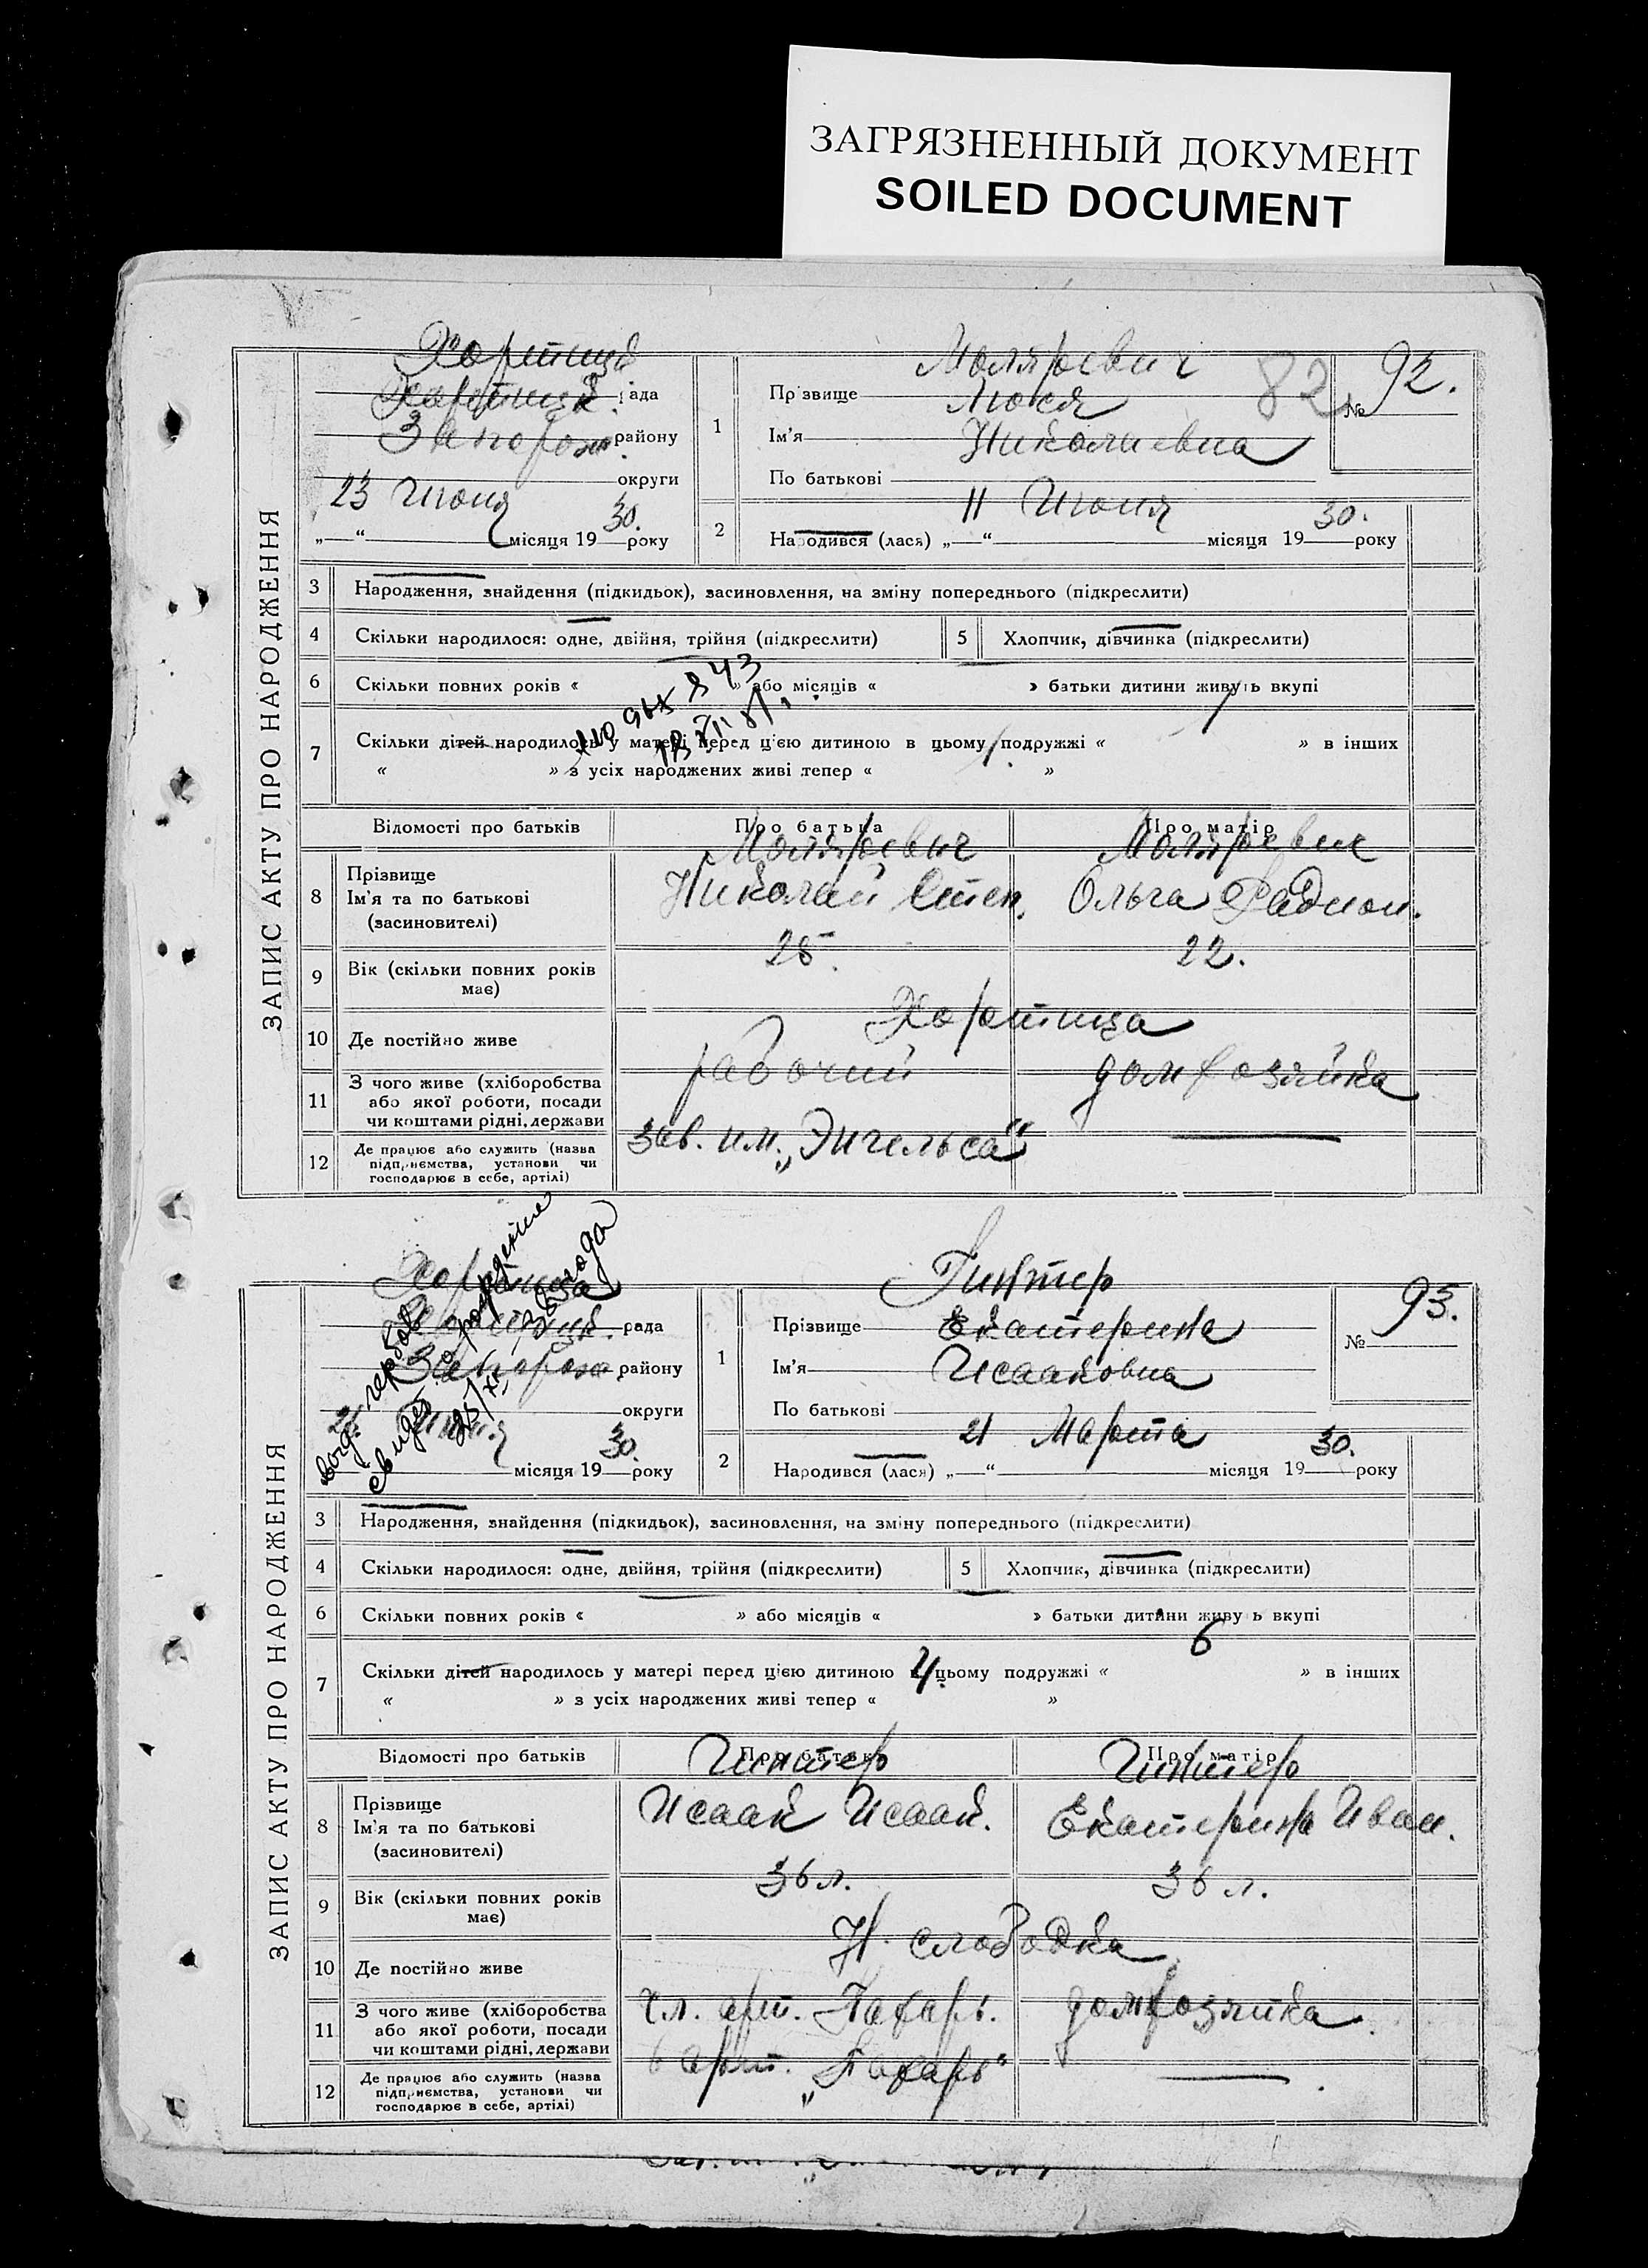 ЗАГРЯЗНЕННЫЙ ДОКУМЕНТ
SOILED DOCUMENT
82
ЗАПИС АКТУ ПРО НАРОДЖЕННЯ
Хортица
рада
Запорож. району
округи
23 Июня
„—“ місяця 1930. року
1
Прізвище Моляревич
Ім'я Люся
По батькові Николаевна
№ 92.
2
Народився (лася) „11“ Июня місяця 1930. року
3 Народження, знайдення (підкидьок), засиновлення, на зміну попереднього (підкреслити)
4 Скільки народилося: одне, двійня, трійня (підкреслити)
5 Хлопчик, дівчинка (підкреслити)
6 Скільки повних років « » або місяців « » батьки дитини живуть вкупі
7 Скільки дітей народилось у матері перед цією дитиною в цьому подружжі « » в інших
« » з усіх народжених живі тепер « »
Відомості про батьків Про батька Про матір
8 Прізвище
Ім'я та по батькові
(засиновителі)
Моляревич
Николай Степ.
Моляревич
Ольга Радион.
9 Вік (скільки повних років має)
22.
10 Де постійно живе
Хортица
11 З чого живе (хліборобства або якої роботи, посади чи коштами рідні, держави
рабочий
домхозяйка
12 Де працює або служить (назва підприємства, установи чи господарює в себе, артілі)
зав. им. „Энгельса“
ЗАПИС АКТУ ПРО НАРОДЖЕННЯ
Хортица
рада
Запорож. району
округи
„—“ місяця 1930. року
1
Прізвище Гинтер
Ім'я Екатерина
По батькові Исааковна
№ 93.
2
Народився (лася) „21“ Марта місяця 1930. року
3 Народження, знайдення (підкидьок), засиновлення, на зміну попереднього (підкреслити)
4 Скільки народилося: одне, двійня, трійня (підкреслити)
5 Хлопчик, дівчинка (підкреслити)
6 Скільки повних років « » або місяців « » батьки дитини живуть вкупі
6
7 Скільки дітей народилось у матері перед цією дитиною в цьому подружжі « » в інших
4.
« » з усіх народжених живі тепер « »
Відомості про батьків Про батька Про матір
8 Прізвище
Ім'я та по батькові
(засиновителі)
Гинтер
Исаак Исаак.
Гинтер
Екатерина Иван.
9 Вік (скільки повних років має)
36 л.
36 л.
10 Де постійно живе
Н. слободка
11 З чого живе (хліборобства або якої роботи, посади чи коштами рідні, держави
хл. арт. Пахарь.
домхозяйка
12 Де працює або служить (назва підприємства, установи чи господарює в себе, артілі)
в арт. „Пахарь“